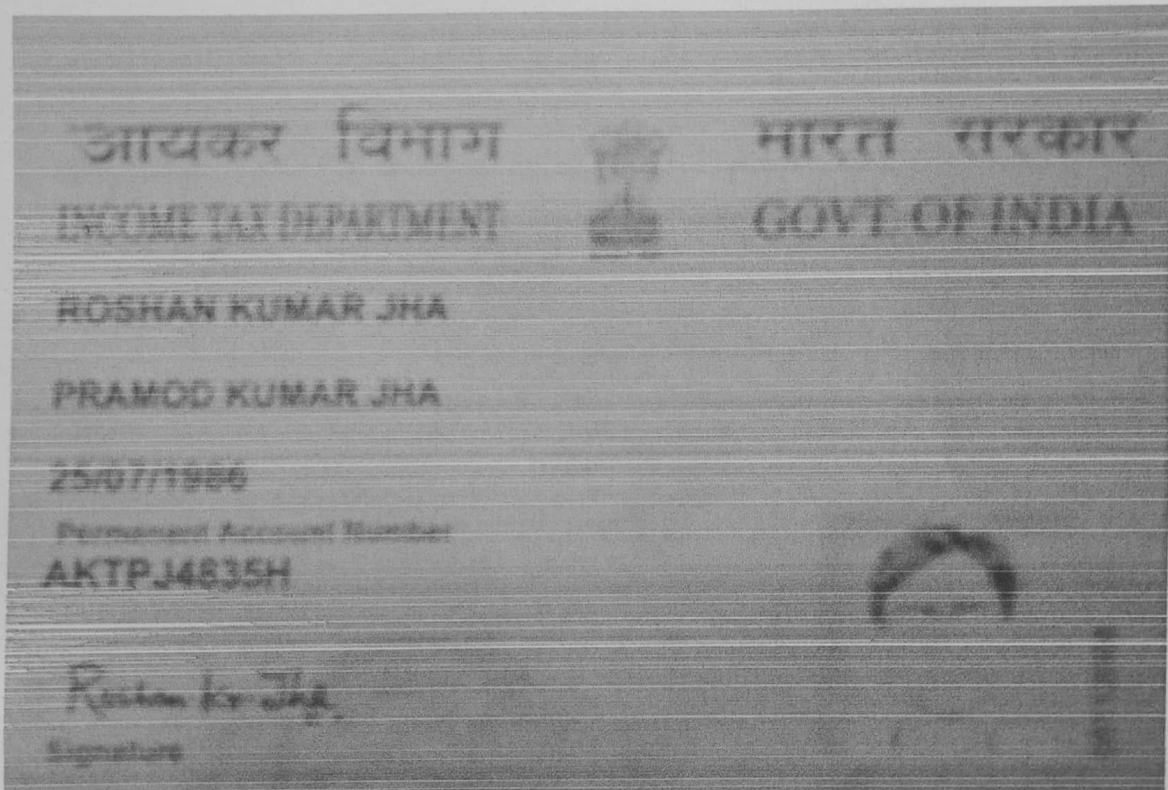 आयकर विभाग भारत सरकार
INCOME TAX DEPARTMENT GOVT OF INDIA
ROSHAN KUMAR JHA
PRAMOD KUMAR JHA
25/07/1986
Permanent Account Number
AKTPJ4835H
Roshan Kr Jha
Signature